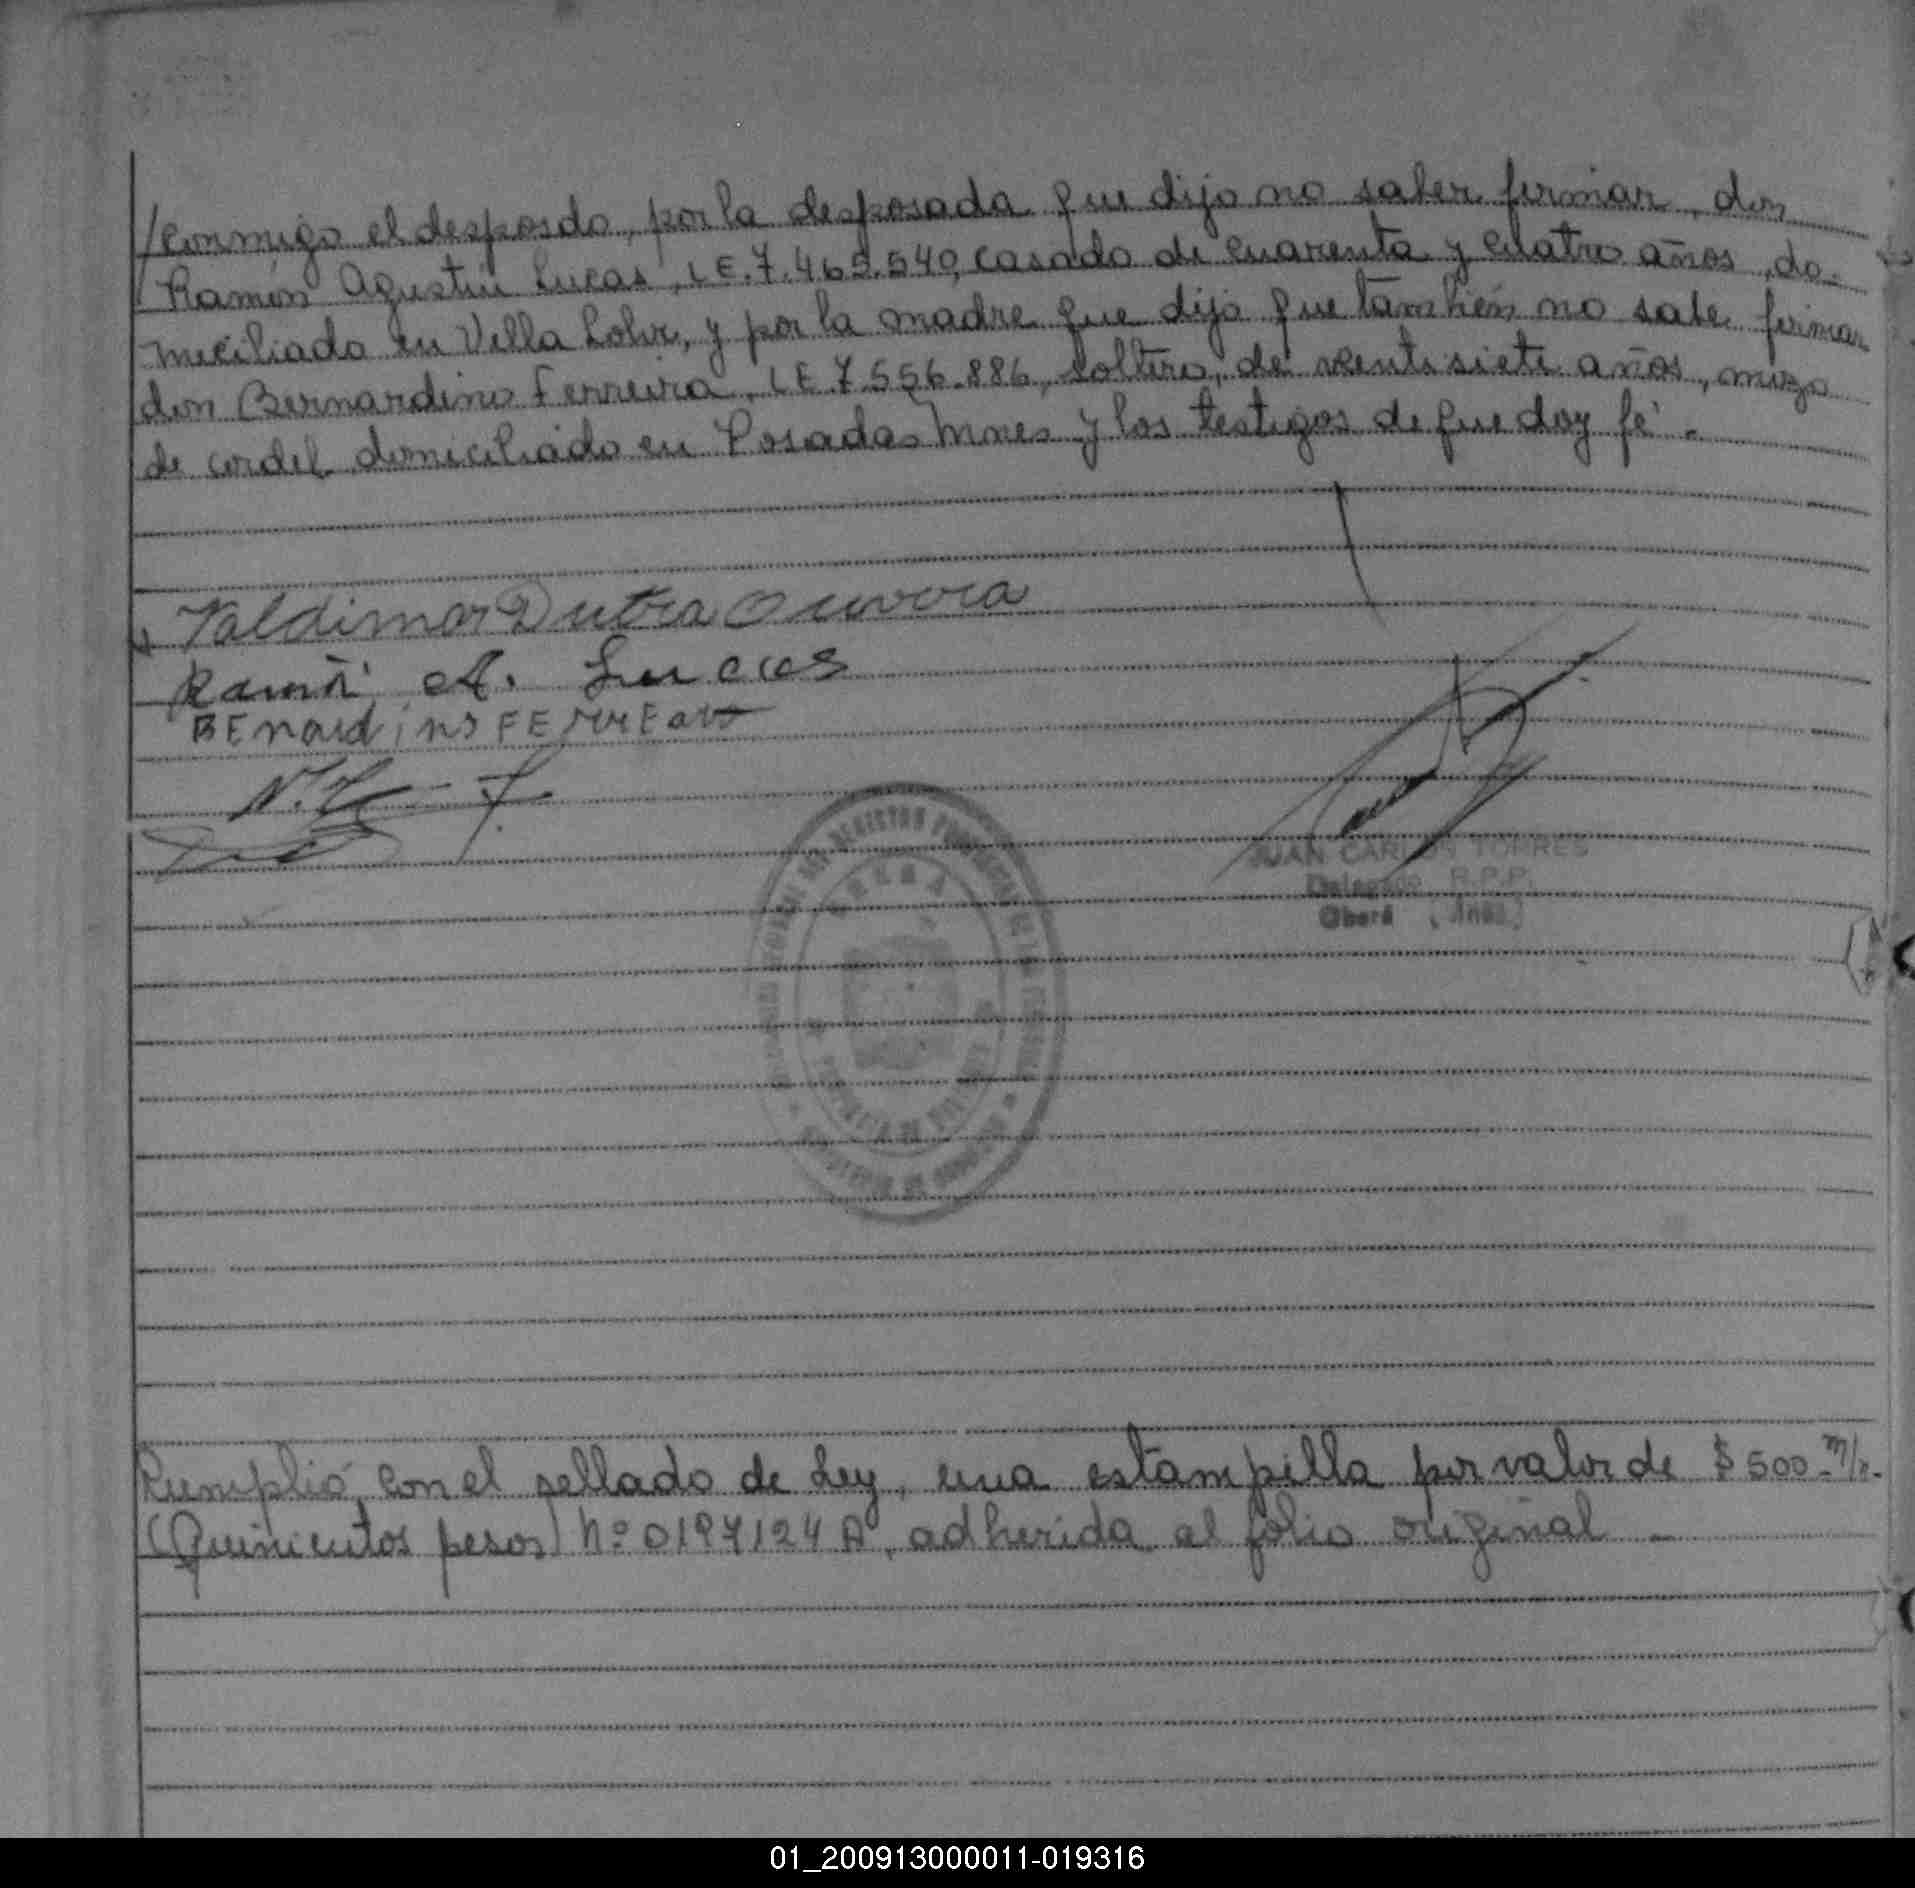 /conmigo el desposdo, por la desposada que dijo no saber firmar, don
Ramón Agustín Lucas, LE. 7.465.540, casado de cuarenta y cuatro años, do-
miciliado en Villa Lohr, y por la madre que dijo que también no sabe firmar
don Bernardino Ferreira, LE 7.556.886, soltero, de veintisiete años, mozo
de cordel domiciliado en Posadas Mnes y los testigos de que doy fé.-
Valdimar Dutra
Ramón A. Lucas
BEnardino FErrEara
JUAN CARLOS TORRES
Delegado R.P.P.
Oberá
Cumplió con el sellado de Ley, una estampilla por valor de $ 500.- m/n.-
(Quinientos pesos) Nº 0197124 A, adherida al folio original -
01_200913000011-019316